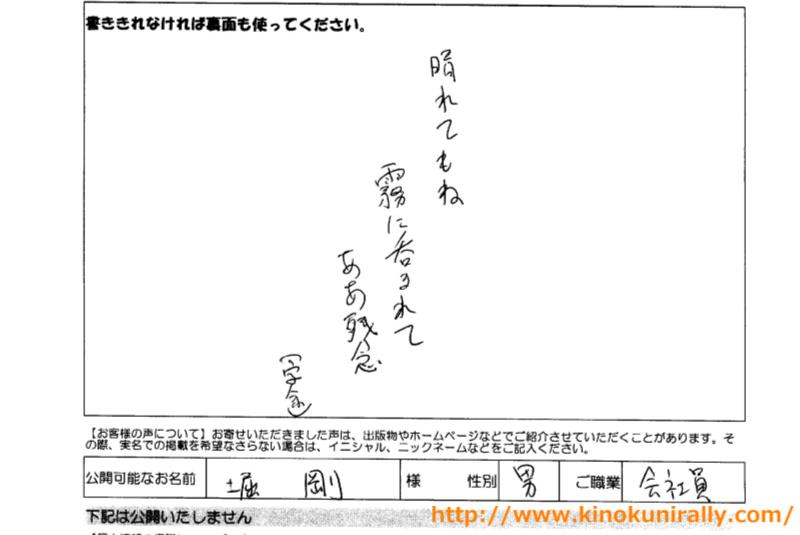 書ききれなければ裏面も使ってください。
晴れてもね
霧に呑まれて
ああ残念
【お客様の声について】お寄せいただきました声は、出版物やホームページなどでご紹介させていただくことがあります。そ
の際、実名での掲載を希望なさらない場合は、イニシャル、ニックネームなどをご記入ください。
公開可能なお名前 堀 剛 様 性別 男 ご職業 会社員
下記は公開いたしません
http://www.kinokunirally.com/